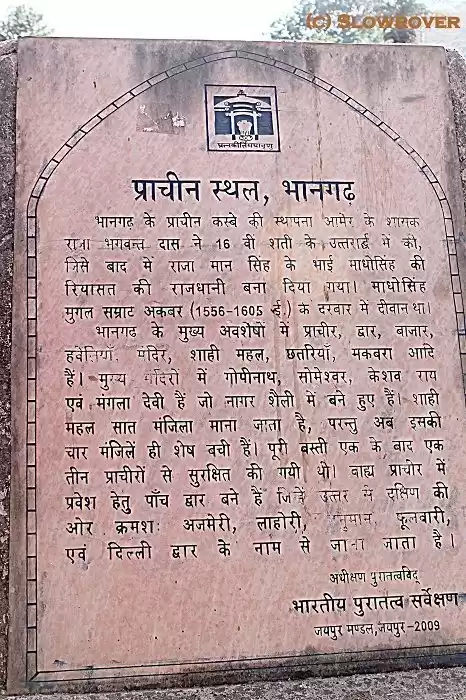 (C) SLOWROVER
प्रत्नकीर्तिमपावृणु
प्राचीन स्थल, भानगढ़
भानगढ़ के प्राचीन कस्बे की स्थापना आमेर के शासक
राजा भगवन्त दास ने 16 वीं शती के उत्तरार्द्ध में की,
जिसे बाद में राजा मान सिंह के भाई माधोसिंह की
रियासत की राजधानी बना दिया गया। माधोसिंह
मुगल सम्राट अकबर (1556-1605 ई.) के दरबार में दीवान था।
भानगढ़ के मुख्य अवशेषों में प्राचीर, द्वार, बाजार,
हवेलियाँ, मंदिर, शाही महल, छतरियाँ, मकबरा आदि
हैं। मुख्य मंदिरों में गोपीनाथ, सोमेश्वर, केशव राय
एवं मंगला देवी हैं जो नागर शैली में बने हुए हैं। शाही
महल सात मंजिला माना जाता है, परन्तु अब इसकी
चार मंजिलें ही शेष बची हैं। पूरी बस्ती एक के बाद एक
तीन प्राचीरों से सुरक्षित की गयी थी। वाह्य प्राचीर में
प्रवेश हेतु पाँच द्वार बने हैं जिन्हें उत्तर से दक्षिण की
ओर क्रमशः अजमेरी, लाहोरी, फूलबारी,
एवं दिल्ली द्वार के नाम से जाना जाता है।
अधीक्षण पुरातत्वविद्
भारतीय पुरातत्व सर्वेक्षण
जयपुर मण्डल,जयपुर-2009